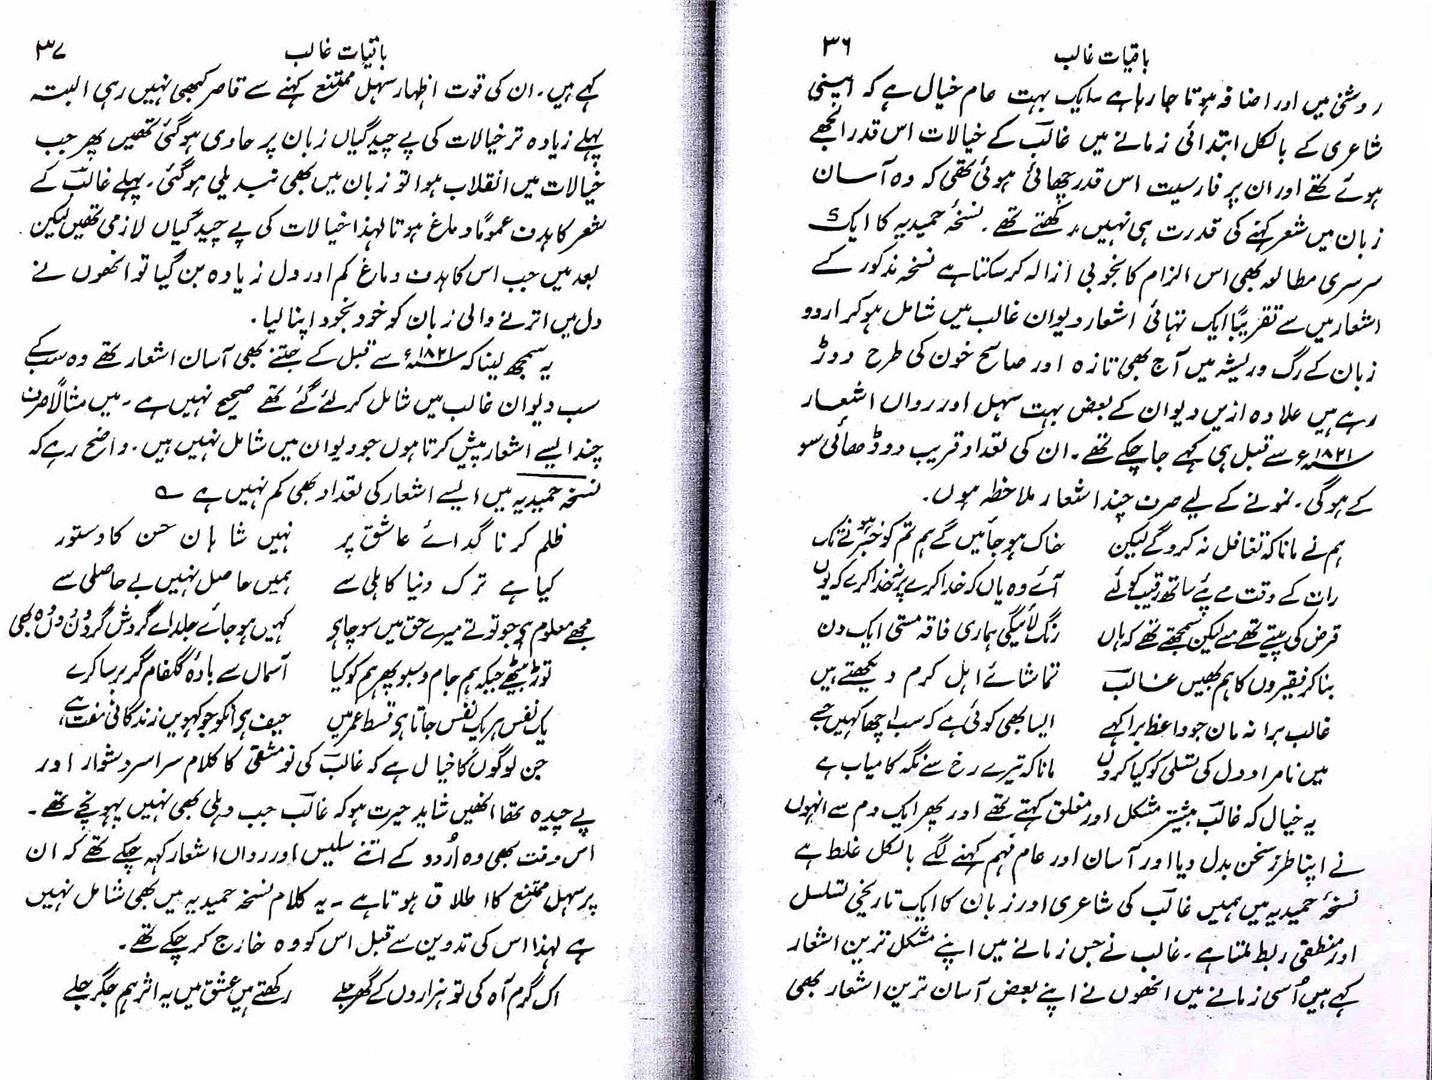 ۳۶
باقیات غالب
روشنی میں اور اضافہ ہوتا جا رہا ہے۔ ایک بہت عام خیال ہے کہ اپنی
شاعری کے بالکل ابتدائی زمانے میں غالبؔ کے خیالات اس قدر الجھے
ہوئے تھے اور ان پر فارسیت اس قدر چھائی ہوئی تھی کہ وہ آسان
زبان میں شعر کہنے کی قدرت ہی نہیں رکھتے تھے۔ نسخۂ حمیدیہ کا ایک
سرسری مطالعہ بھی اس الزام کا بخوبی ازالہ کر سکتا ہے نسخہ مذکور کے
اشعار میں سے تقریباً ایک تہائی اشعار دیوان غالب میں شامل ہو کر اردو
زبان کے رگ و ریشہ میں آج بھی تازہ اور صالح خون کی طرح دوڑ
رہے ہیں علاوہ ازیں دیوان کے بعض بہت سہل اور رواں اشعار
۱۸۲۱ء سے قبل ہی کہے جا چکے تھے۔ ان کی تعداد قریب دو ڈھائی سو
کے ہوگی۔ نمونے کے لیے صرف چند اشعار ملاحظہ ہوں۔
ہم نے مانا کہ تغافل نہ کرو گے لیکن خاک ہو جائیں گے ہم تم کو خبر ہونے تک
رات کے وقت مے پئے ساتھ رقیب کو لئے آئے وہ یاں کہ خدا کرے پر نہ خدا کرے کہ یوں
قرض کی پیتے تھے مے لیکن سمجھتے تھے کہ ہاں رنگ لائیگی ہماری فاقہ مستی ایک دن
بنا کر فقیروں کا ہم بھیس غالبؔ تماشائے اہل کرم دیکھتے ہیں
غالب برا نہ مان جو واعظ برا کہے ایسا بھی کوئی ہے کہ سب اچھا کہیں جسے
میں نامراد دل کی تسلی کو کیا کروں مانا کہ تیرے رخ سے نگہ کامیاب ہے
یہ خیال کہ غالبؔ بیشتر مشکل اور مغلق کہتے تھے اور پھر ایک دم سے انہوں
نے اپنا طرزِ سخن بدل دیا اور آسان اور عام فہم کہنے لگے بالکل غلط ہے
نسخۂ حمیدیہ میں ہمیں غالبؔ کی شاعری اور زبان کا ایک تاریخی تسلسل
اور منطقی ربط ملتا ہے۔ غالب نے جس زمانے میں اپنے مشکل ترین اشعار
کہے ہیں اُسی زمانے میں انھوں نے اپنے بعض آسان ترین اشعار بھی
۳۷
باقیات غالب
کہے ہیں۔ ان کی قوت اظہار سہل ممتنع کہنے سے قاصر کبھی نہیں رہی البتہ
پہلے زیادہ تر خیالات کی پے چیدگیاں زبان پر حاوی ہو گئی تھیں پھر جب
خیالات میں انقلاب ہوا تو زبان میں بھی تبدیلی ہو گئی۔ پہلے غالبؔ کے
شعر کا ہدف عموماً دماغ ہوتا لہٰذا خیالات کی پے چیدگیاں لازمی تھیں لیکن
بعد میں جب اس کا ہدف دماغ کم اور دل زیادہ بن گیا تو انھوں نے
دل میں اترنے والی زبان کو خود بخود اپنا لیا۔
یہ سمجھ لینا کہ ۱۸۲۱ء سے قبل کے جتنے بھی آسان اشعار تھے وہ سب کے
سب دیوان غالب میں شامل کر لئے گئے تھے صحیح نہیں ہے۔ میں مثالاً صرف
چند ایسے اشعار پیش کرتا ہوں جو دیوان میں شامل نہیں ہیں۔ واضح رہے کہ
نسخہ حمیدیہ میں ایسے اشعار کی تعداد بھی کم نہیں ہے
ظلم کرنا گدائے عاشق پر نہیں شاہان حسن کا دستور
کیا ہے ترک دنیا کاہلی سے ہمیں حاصل نہیں بے حاصلی سے
مجھے معلوم ہے جو تو نے میرے حق میں سوچا ہے کہیں ہو جائے جلد اے گردش گردونِ دوں وہ بھی
توڑ بیٹھے جبکہ ہم جام و سبو پھر ہم کو کیا آسماں سے بادۂ گلفام گر برسا کرے
یک نفس ہر یک نفس جاتا ہے قسط عمر میں حیف ہے انکو جو کہویں زندگانی مفت ہے
جن لوگوں کا خیال ہے کہ غالبؔ کی نو مشقی کا کلام سراسر دشوار اور
پے چیدہ تھا انھیں شاید حیرت ہو کہ غالبؔ جب دہلی بھی نہیں پہونچے تھے۔
اس وقت بھی وہ اُردو کے اتنے سلیس اور رواں اشعار کہہ چکے تھے کہ ان
پر سہل ممتنع کا اطلاق ہوتا ہے۔ یہ کلام نسخہ حمیدیہ میں بھی شامل نہیں
ہے لہٰذا اس کی تدوین سے قبل اس کو وہ خارج کر چکے تھے۔
اک گرم آہ کی تو ہزاروں کے گھر جلے رکھتے ہیں عشق میں یہ اثر ہم جگر جلے